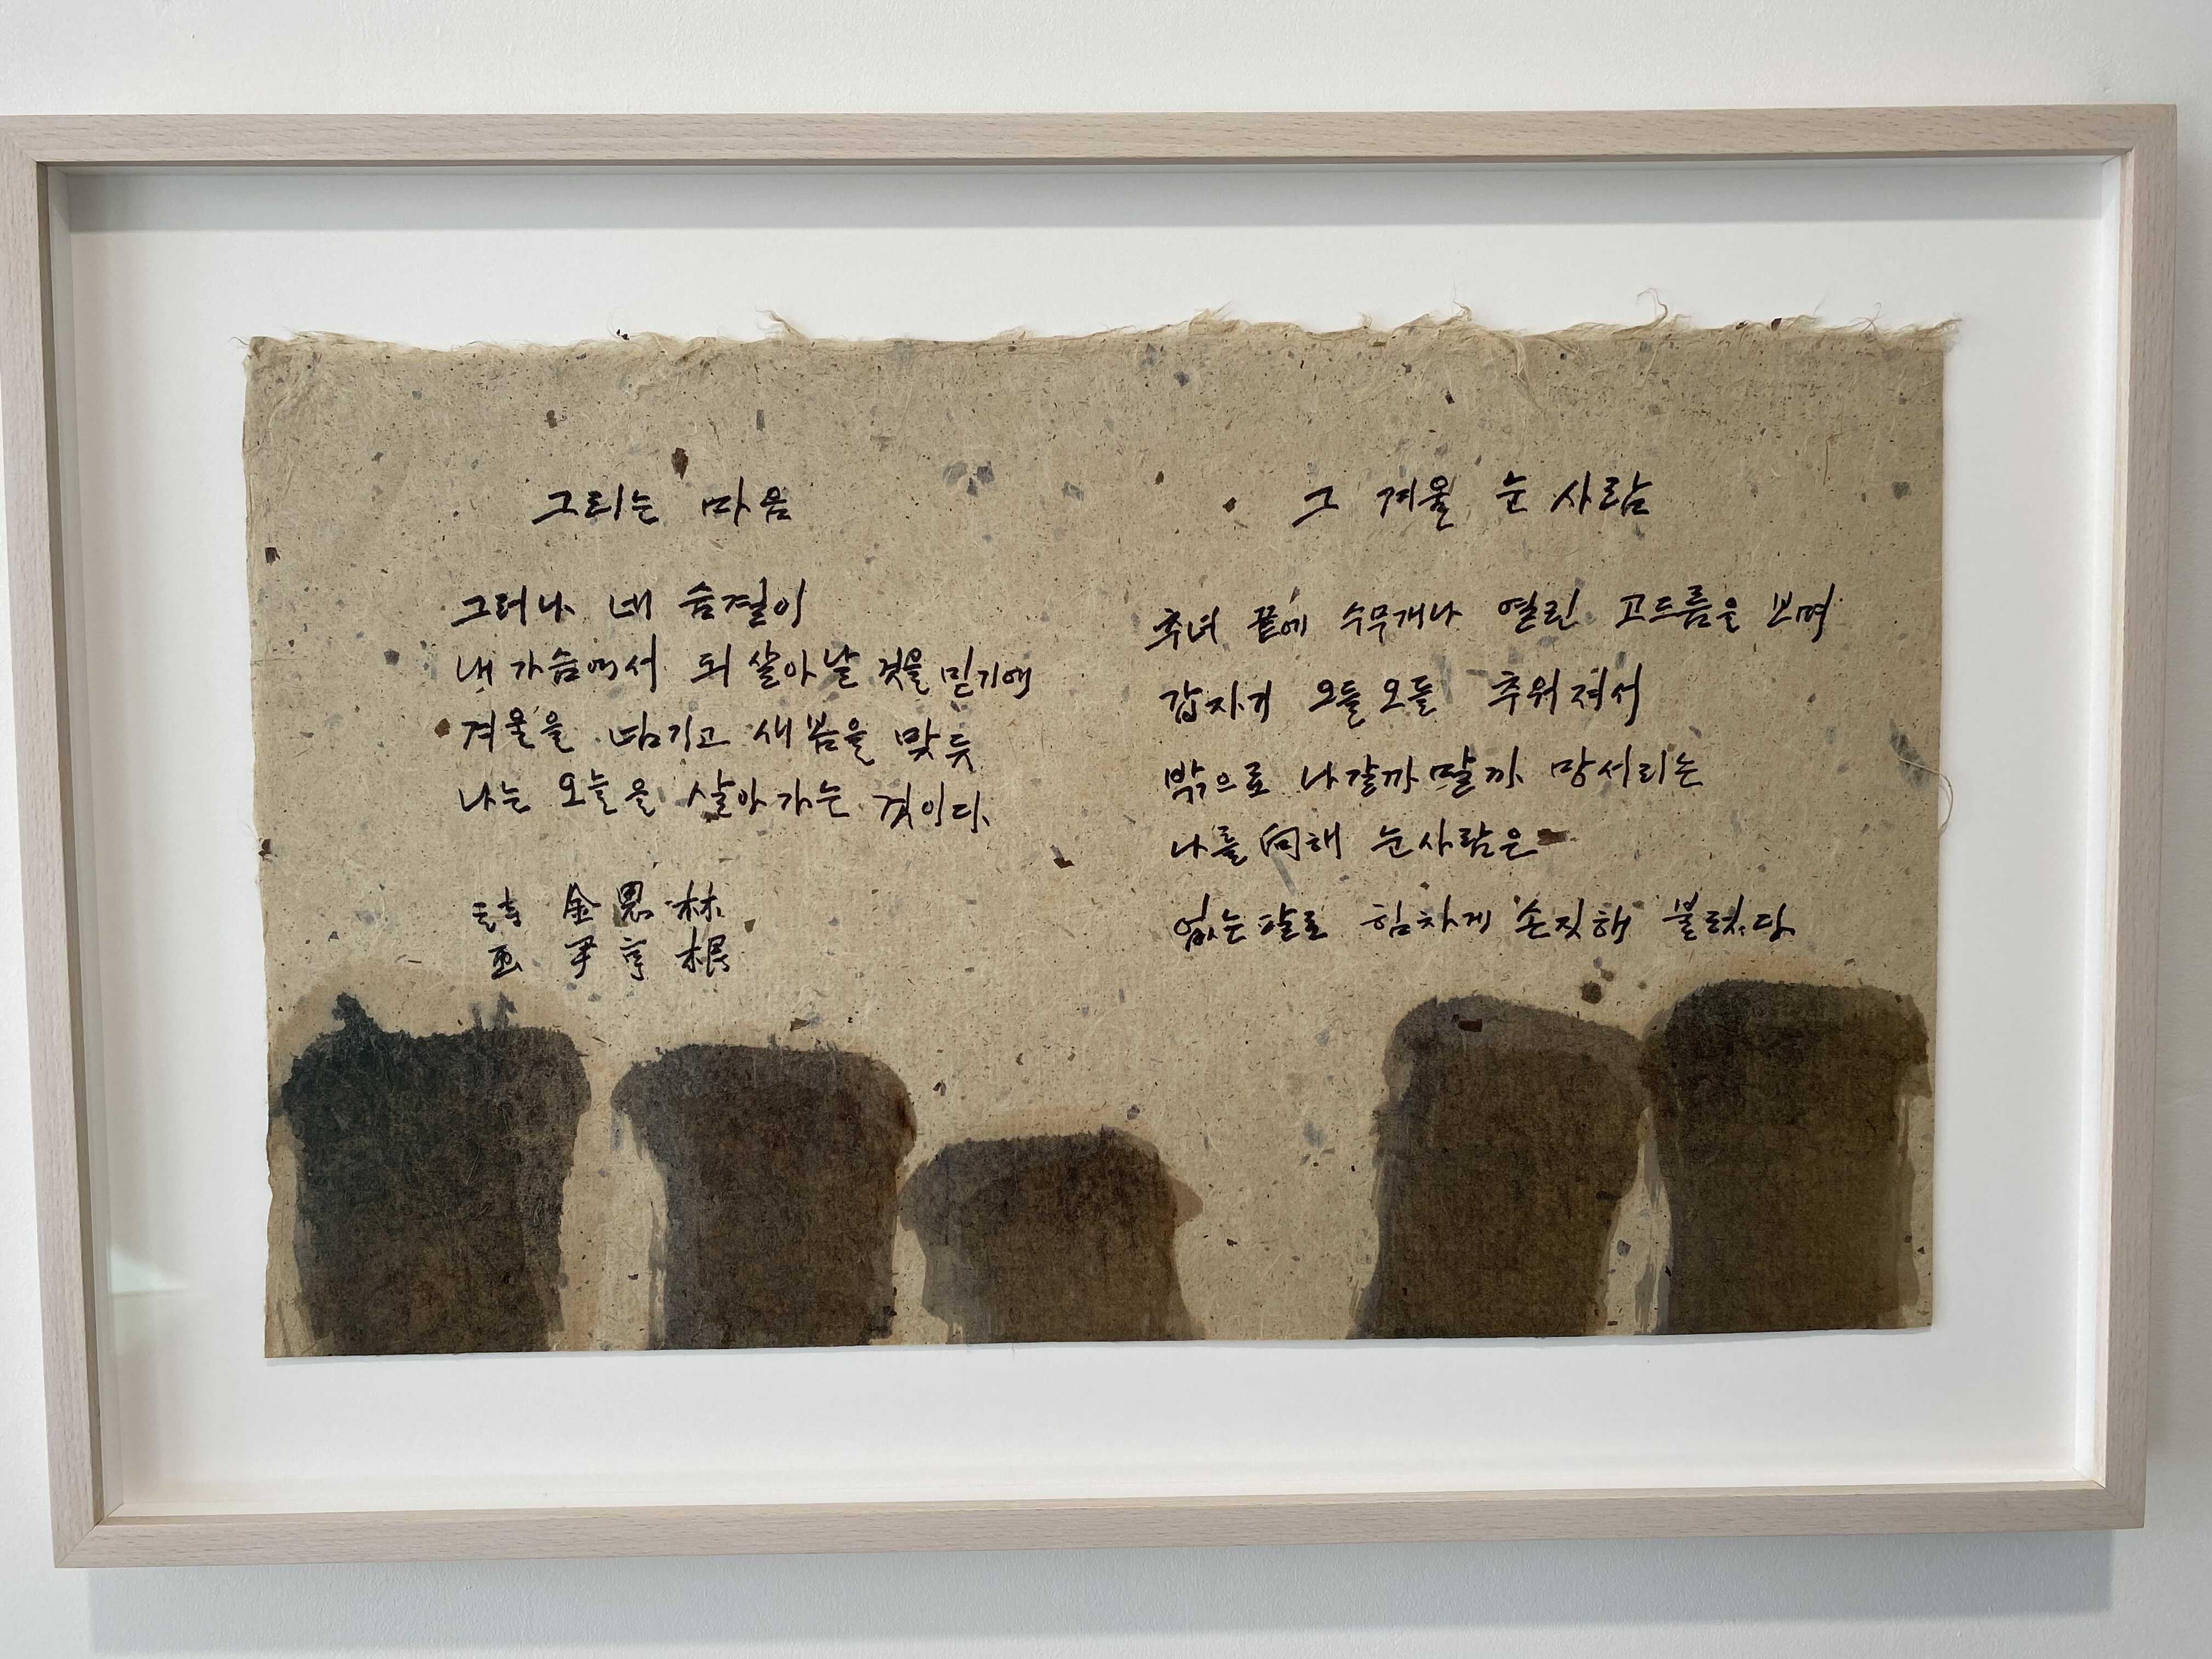 그리는 마음
그러나 네 숨결이
내 가슴에서 되살아날 것을 믿기에
겨울을 넘기고 새봄을 맞듯
나는 오늘을 살아가는 것이다.
詩 金思林
画 尹亨根
그 겨울 눈사람
추녀 끝에 수무개나 열린 고드름을 보며
갑자기 오들오들 추워져서
밖으로 나갈까 말까 망서리는
나를 向해 눈사람은
없는 팔로 힘차게 손짓해 불렀다.